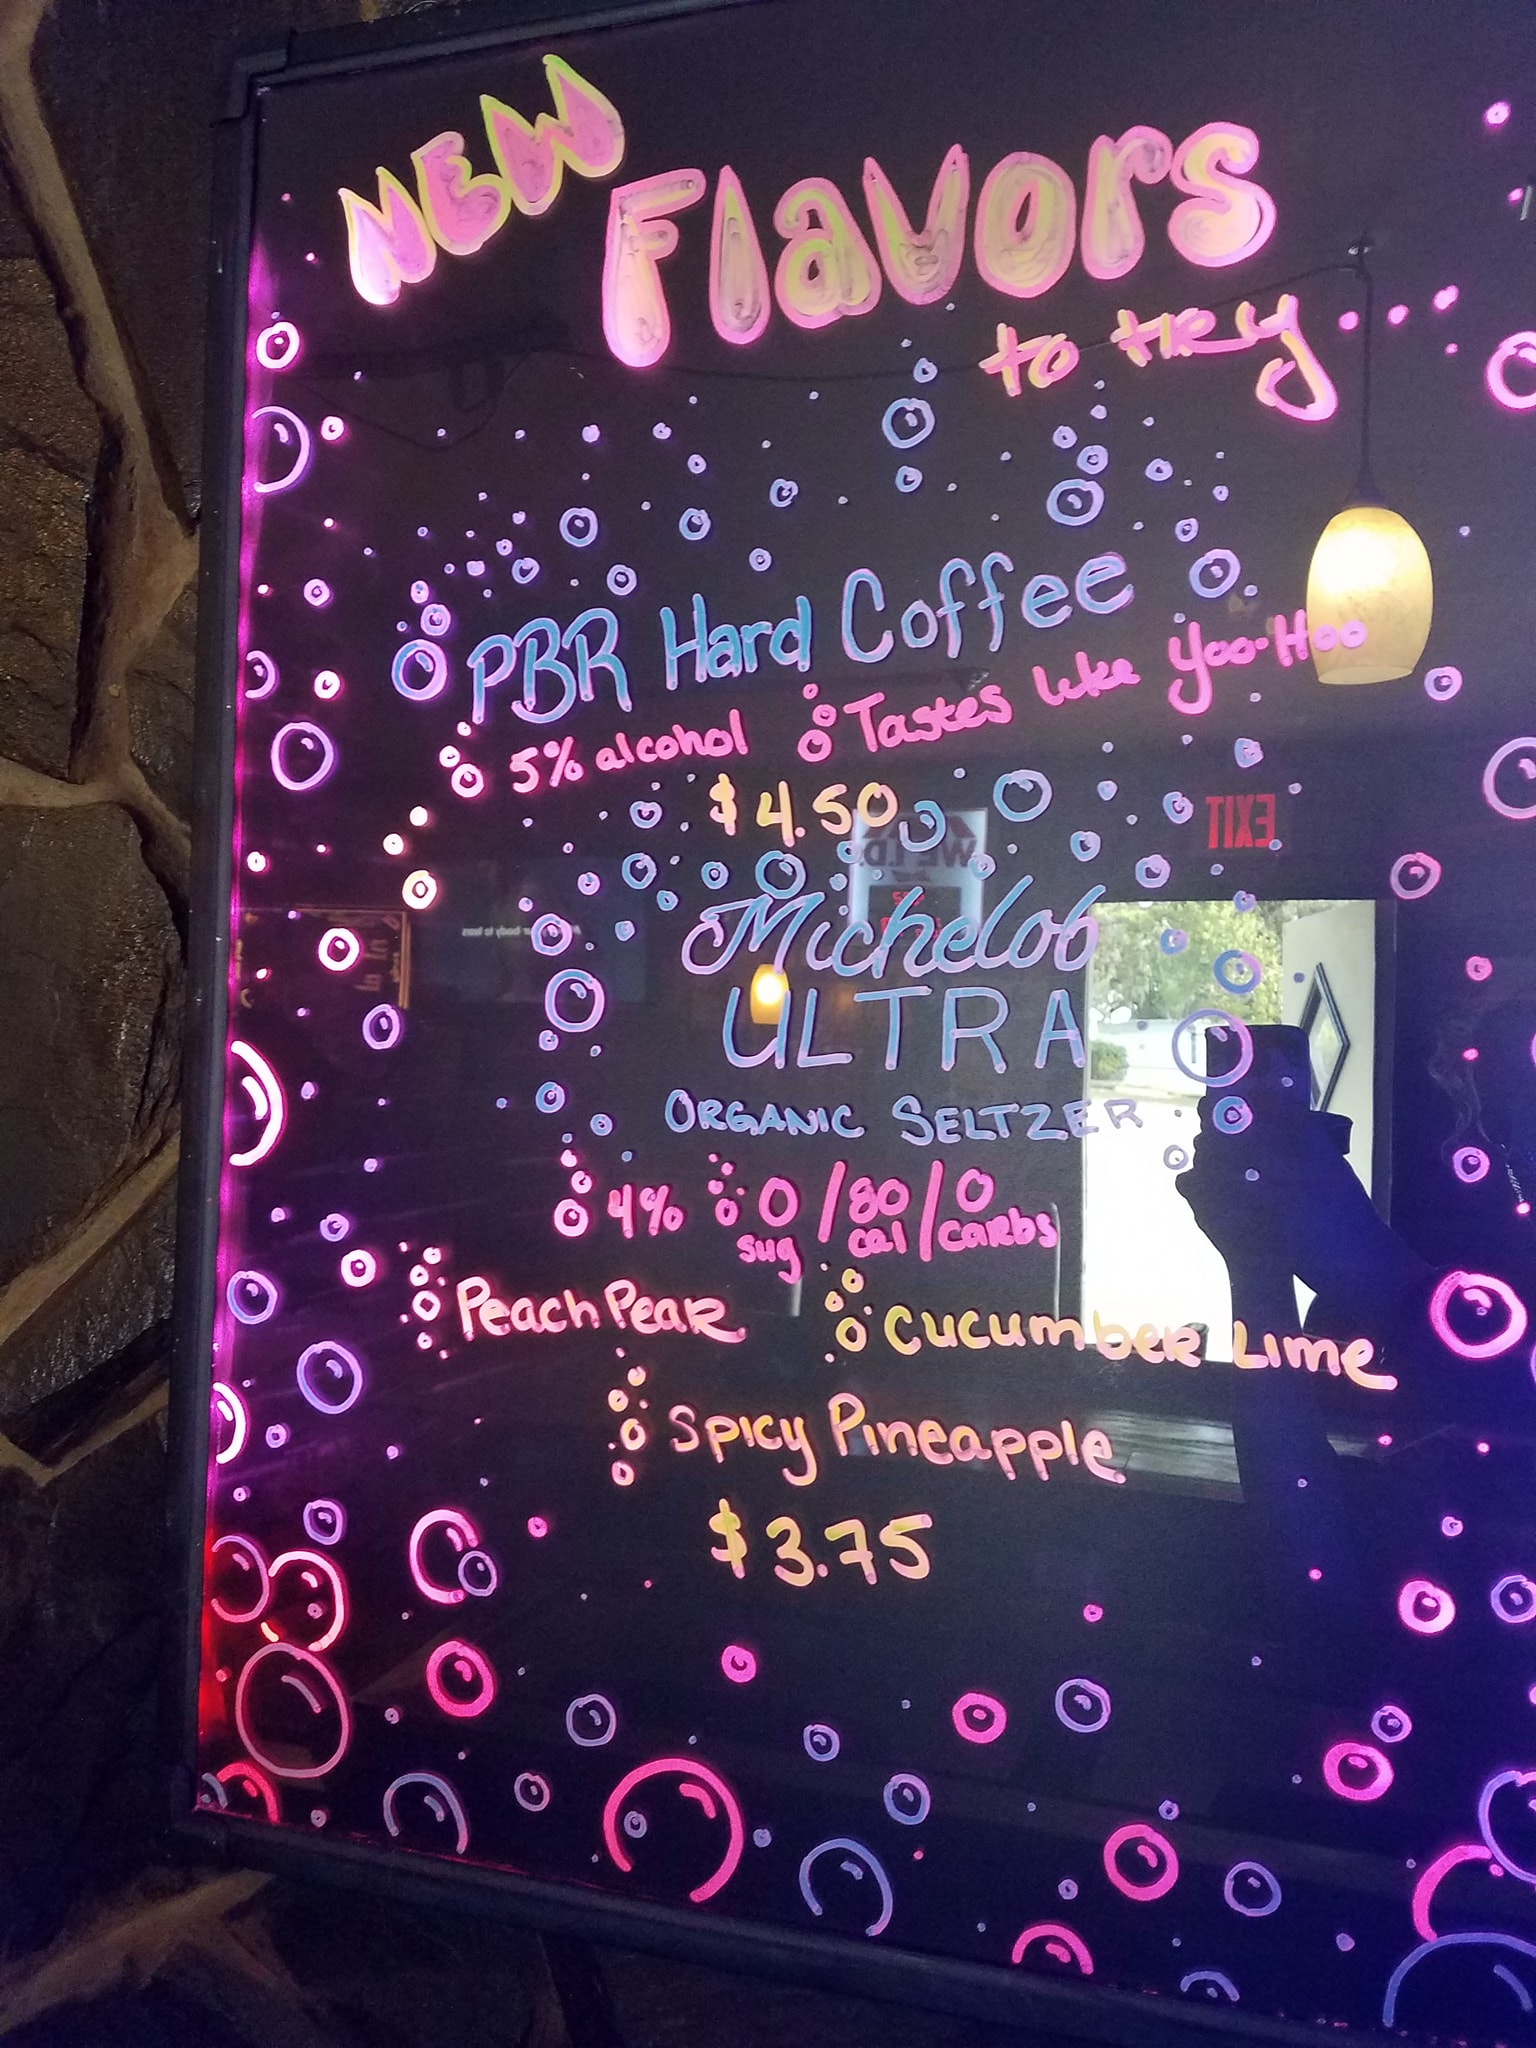 NEW
Flavors
to try....
PBR Hard Coffee
5% alcohol Tastes like Yoo-Hoo
$4.50
Michelob
ULTRA
ORGANIC SELTZER
4% 0/80/0
sug cal carbs
Peach Pear Cucumber Lime
Spicy Pineapple
$3.75
EXIT
WE I.D.